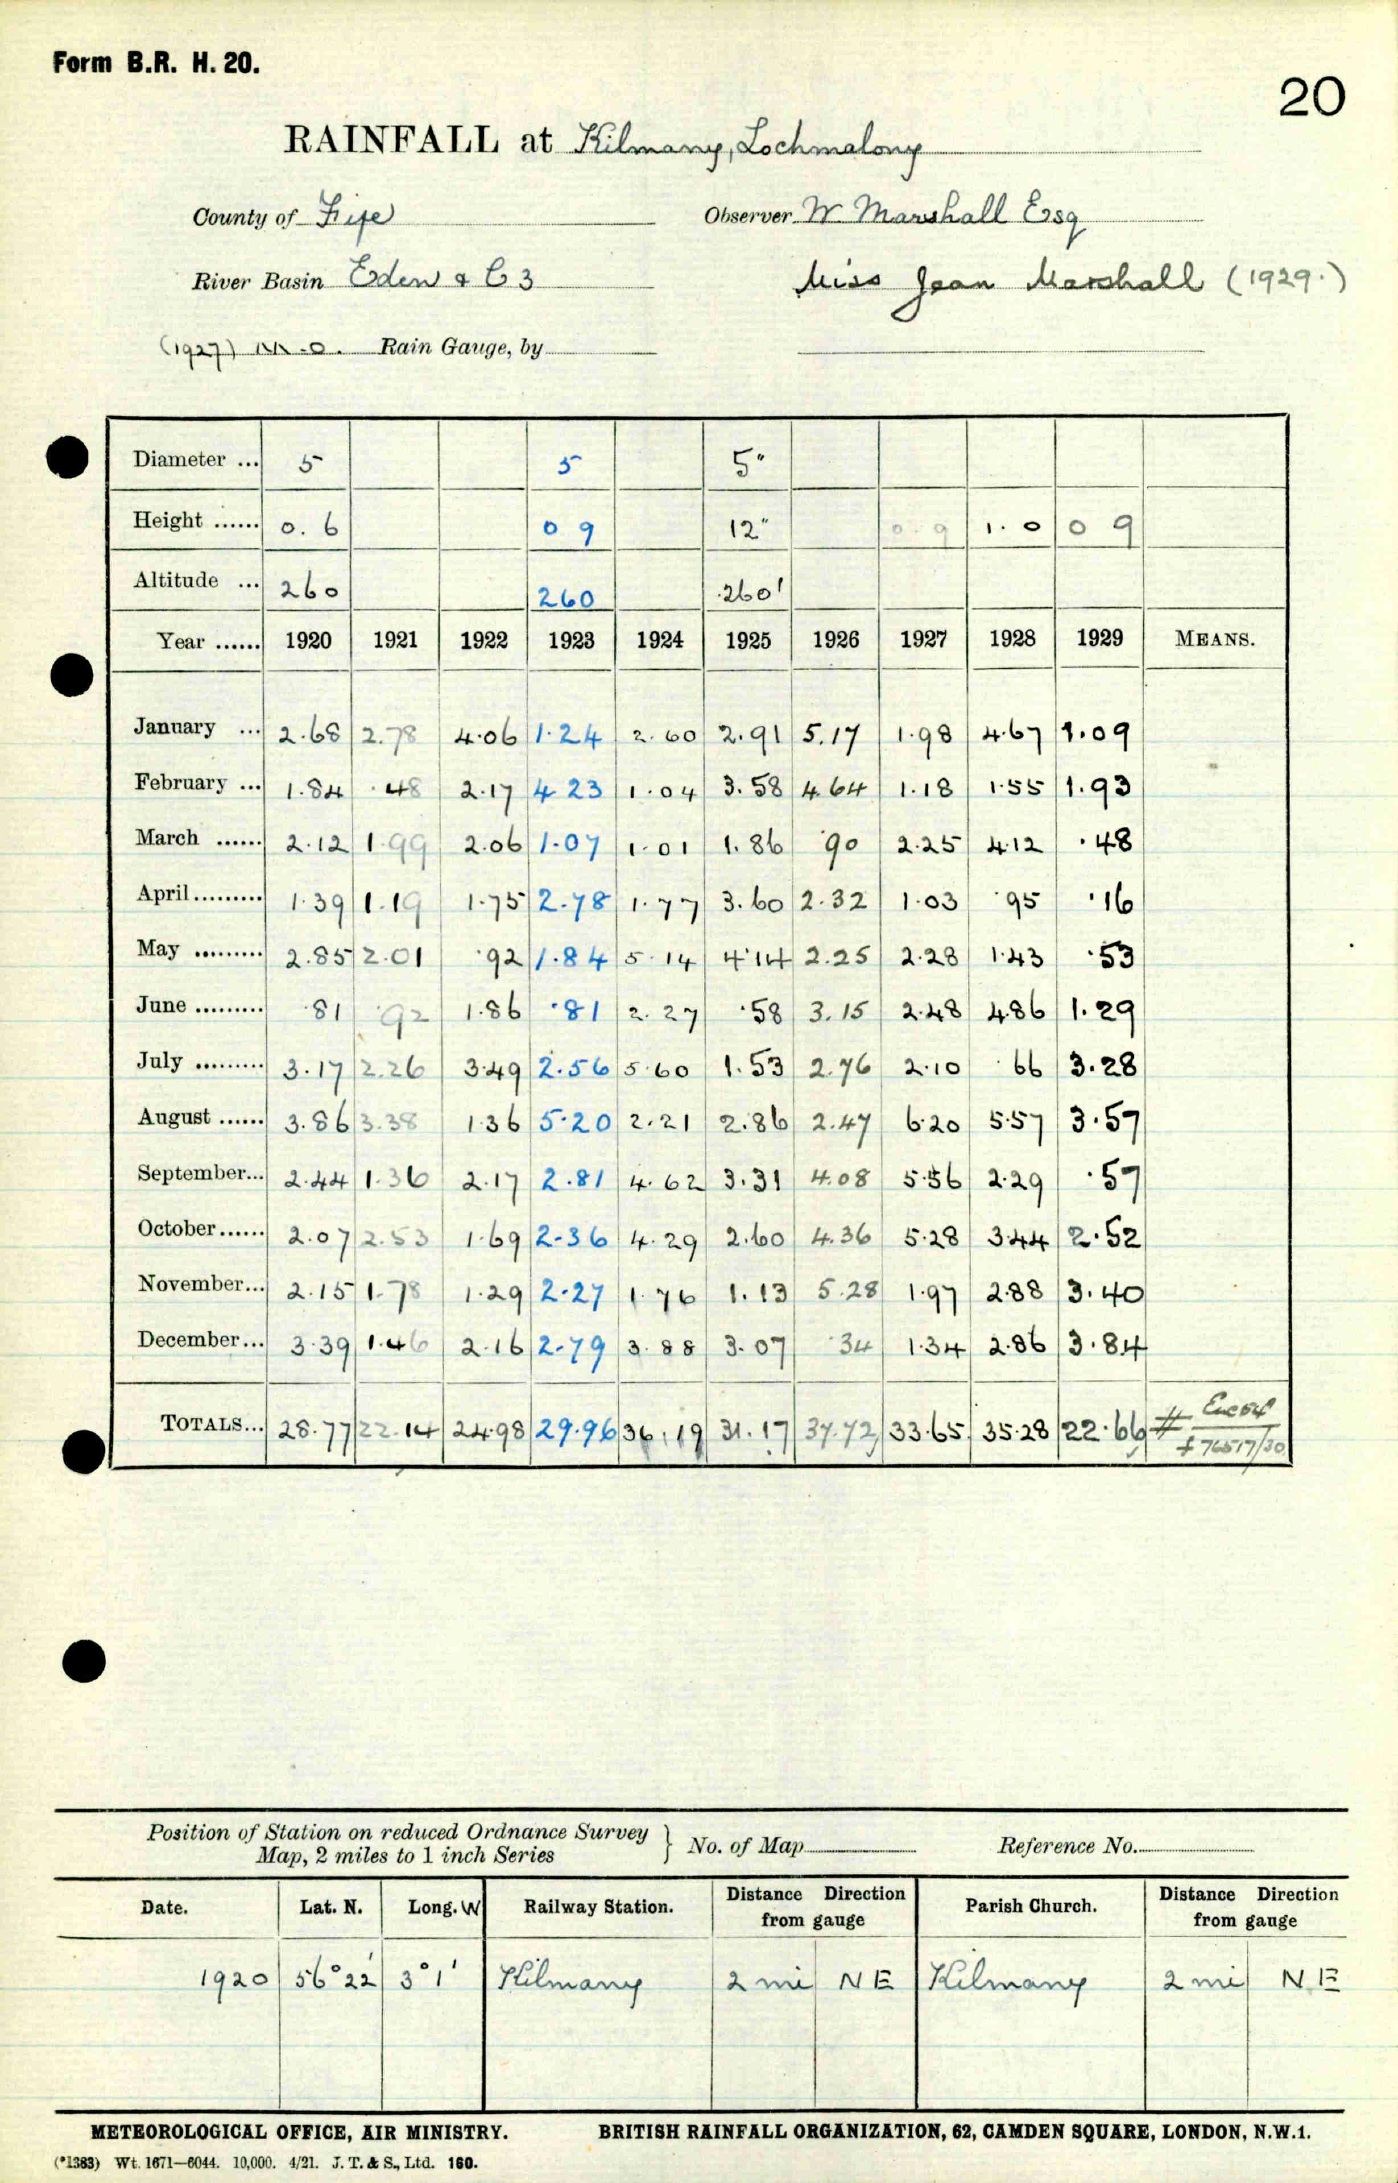 Form B.R. H. 20.
20
RAINFALL at Kilmany, Lochmalony
County of Fife Observer W Marshall Esq
River Basin Eden & C 3 Miss Jean Marshall (1929.)
(1927) M.O. Rain Gauge, by
Diameter ... 5 5 5"
Height ...... 0.6 0 9 12" 0.9 1.0 0 9
Altitude ... 260 260 260'
Year ...... 1920 1921 1922 1923 1924 1925 1926 1927 1928 1929 MEANS.
January ... 2.68 2.78 4.06 1.24 2.60 2.91 5.17 1.98 4.67 1.09
February ... 1.84 .48 2.17 4 23 1.04 3.58 4.64 1.18 1.55 1.93
March ...... 2.12 1.99 2.06 1.07 1.01 1.86 .90 2.25 4.12 .48
April ......... 1.39 1.19 1.75 2.78 1.77 3.60 2.32 1.03 .95 .16
May ......... 2.85 2.01 .92 1.84 5.14 4.14 2.25 2.28 1.43 .53
June ......... .81 .92 1.86 .81 2.27 .58 3.15 2.48 4.86 1.29
July ......... 3.17 2.26 3.49 2.56 5.60 1.53 2.76 2.10 .66 3.28
August ...... 3.86 3.38 1.36 5.20 2.21 2.86 2.47 6.20 5.57 3.57
September... 2.44 1.36 2.17 2.81 4.62 3.31 4.08 5.56 2.29 .57
October...... 2.07 2.53 1.69 2.36 4.29 2.60 4.36 5.28 3.44 2.52
November... 2.15 1.78 1.29 2.27 1.76 1.13 5.28 1.97 2.88 3.40
December... 3.39 1.46 2.16 2.79 3.88 3.07 .34 1.34 2.86 3.84
TOTALS... 28.77 22.14 24.98 29.96 36.19 31.17 37.72 33.65 35.28 22.66 #
76517/30
Position of Station on reduced Ordnance Survey
Map, 2 miles to 1 inch Series } No. of Map Reference No.
Date. Lat. N. Long. W Railway Station. Distance Direction from gauge Parish Church. Distance Direction from gauge
1920 56°22' 3°1' Kilmany 2 mi N E Kilmany 2 mi N.E
METEOROLOGICAL OFFICE, AIR MINISTRY. BRITISH RAINFALL ORGANIZATION, 62, CAMDEN SQUARE, LONDON, N.W.1.
(*1383) Wt. 1671—6044. 10,000. 4/21. J. T. & S., Ltd. 160.